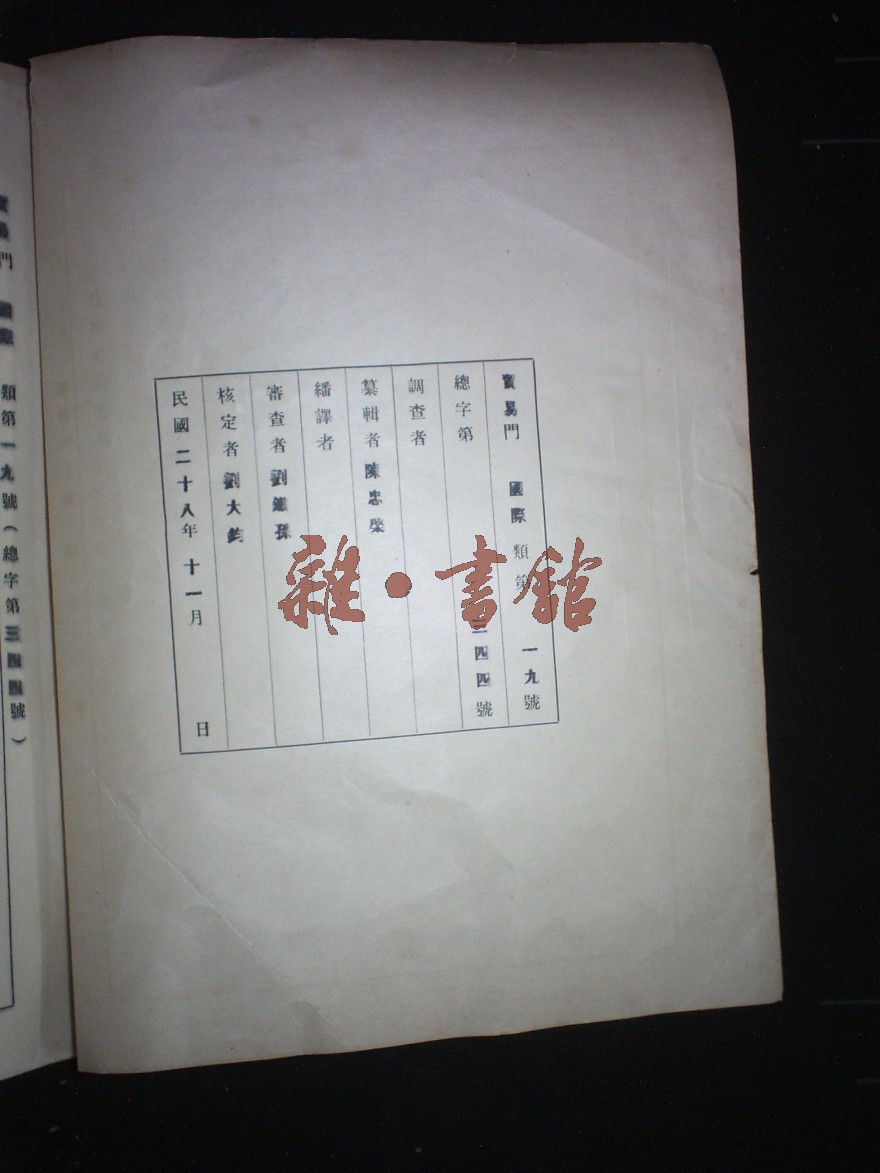 貿易門 國際 類第 一九號
總字第 三四四號
調查者
纂輯者 陳忠榮
繙譯者
審查者 劉鐵孫
核定者 劉大鈞
民國二十八年十一月 日
雜·書館
貿易門 國際 類第一九號(總字第三四四號)